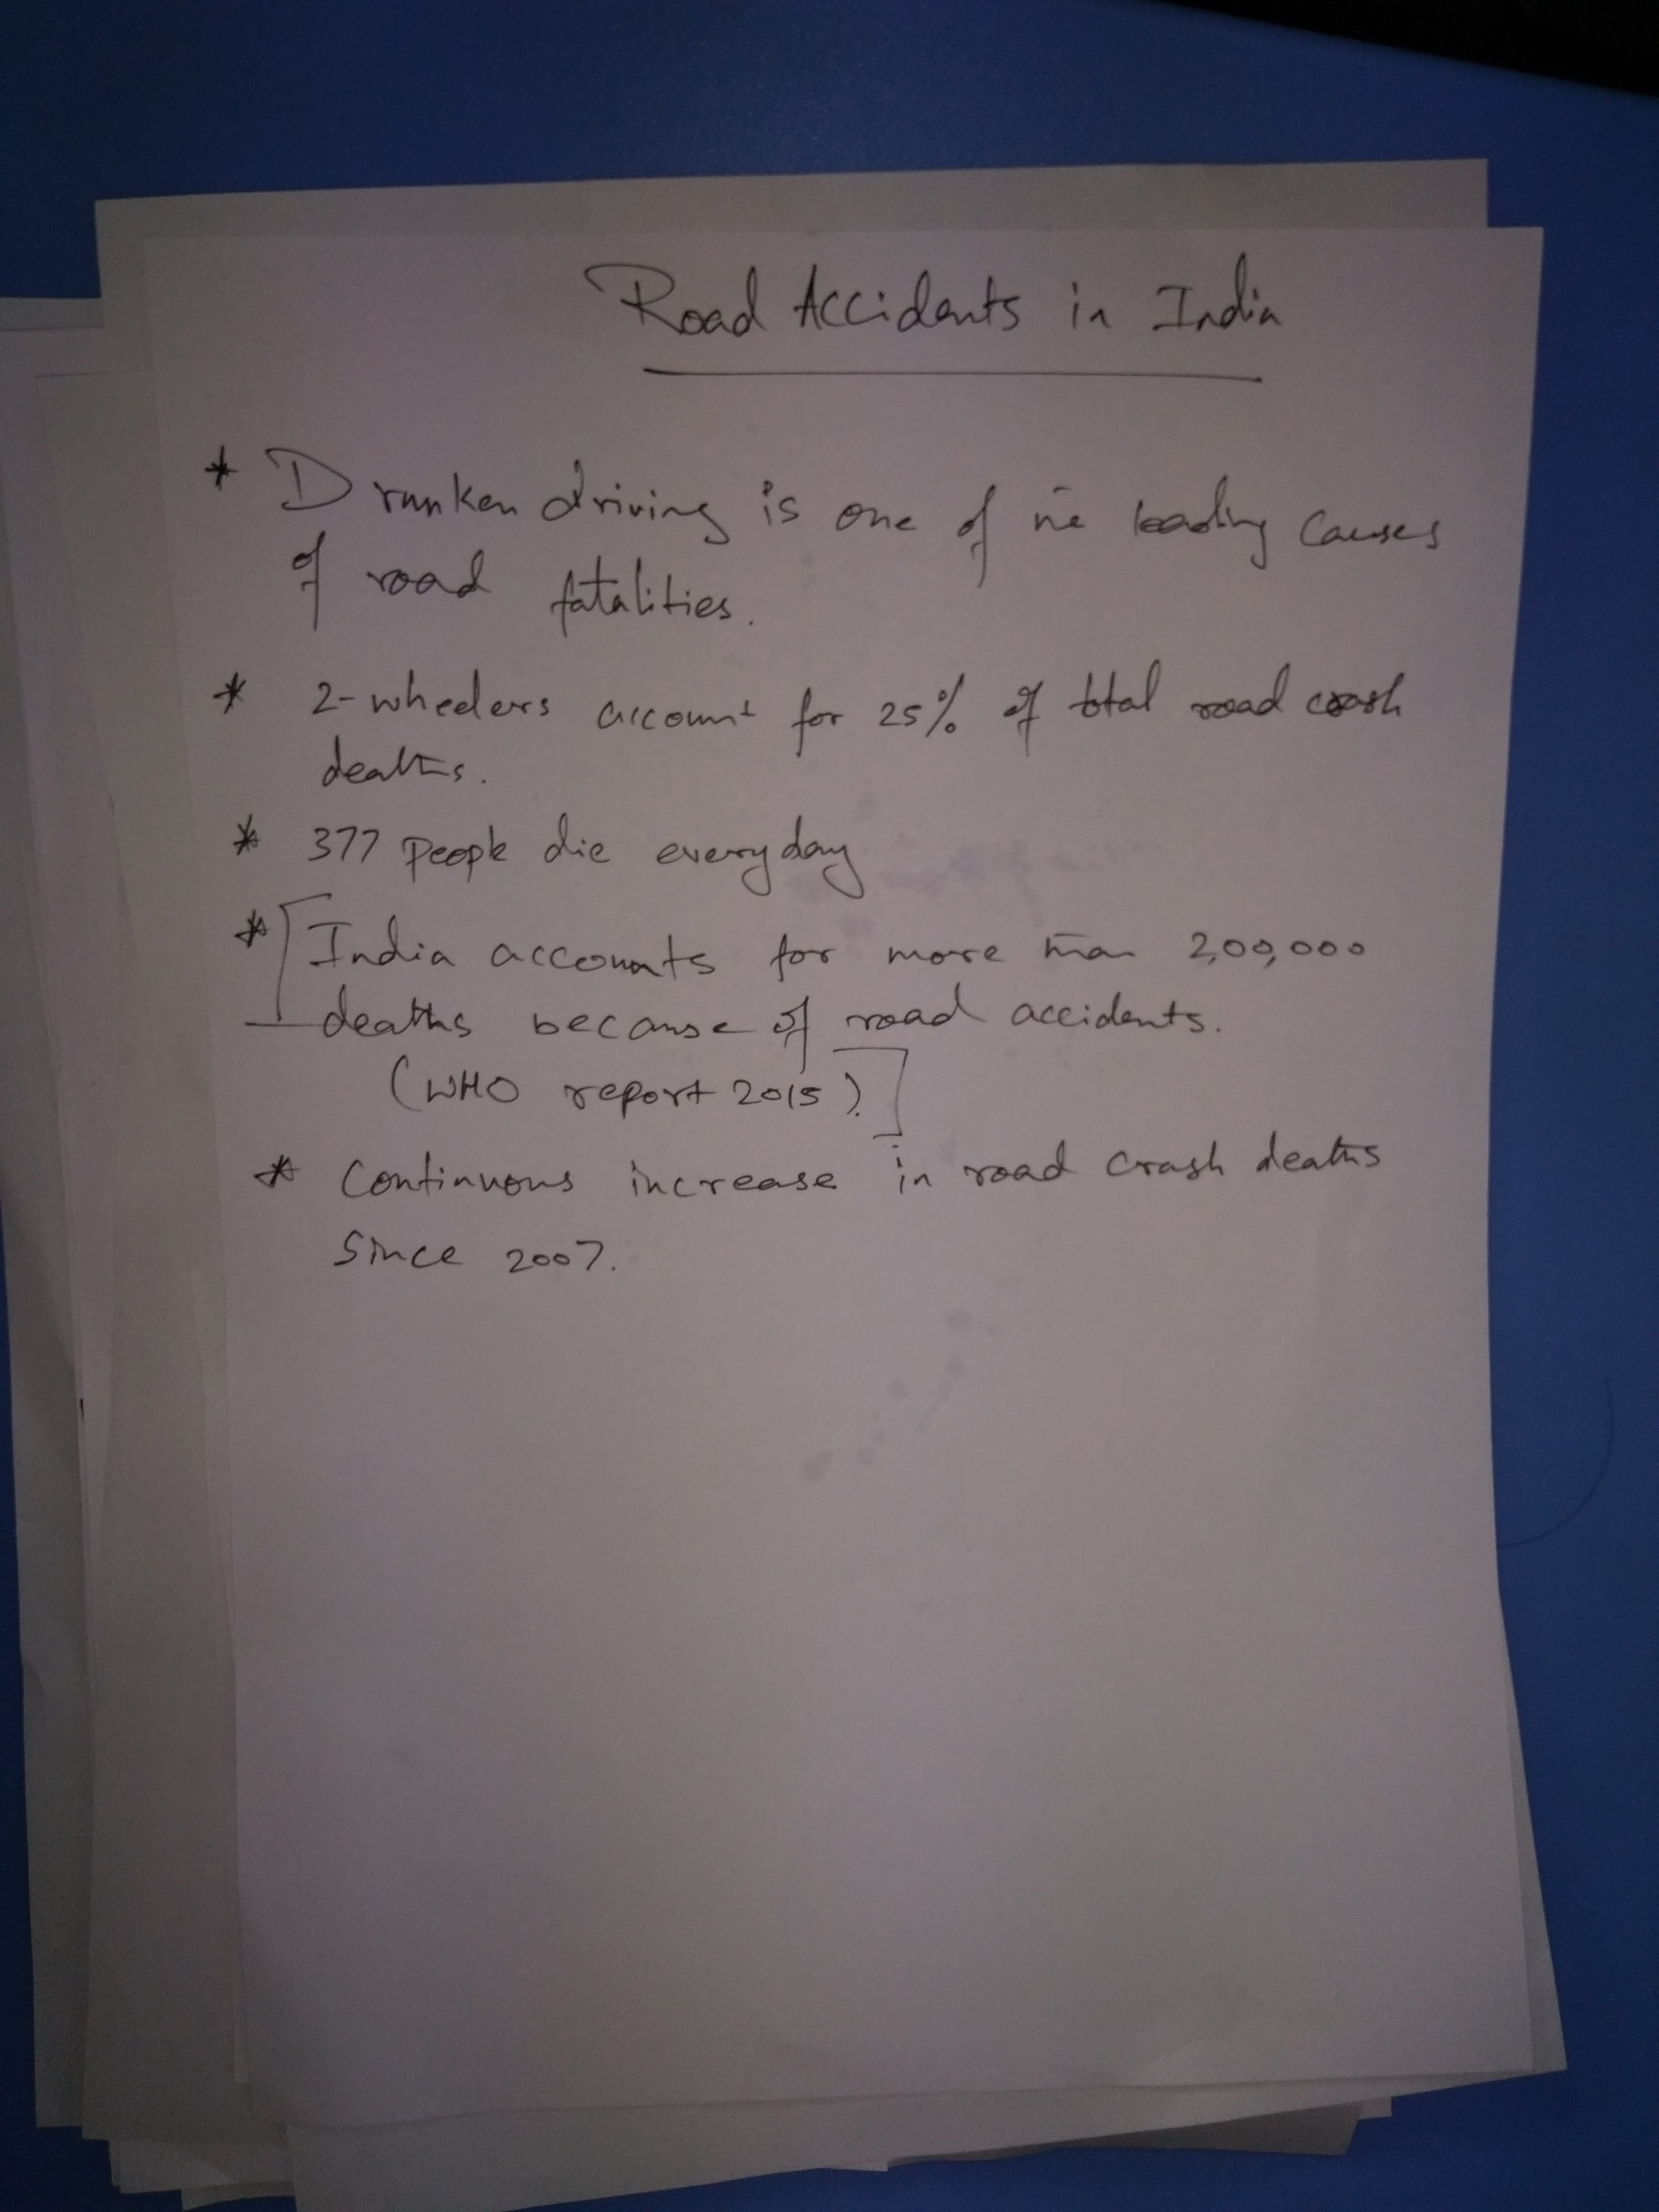 Road Accidents in India
* Drunken driving is one of the leading causes
of road fatalities.
* 2-wheelers account for 25% of total road crash
deaths.
* 377 people die everyday
* [India accounts for more than 2,00,000
deaths because of road accidents.
(WHO report 2015).]
* Continuous increase in road crash deaths
since 2007.